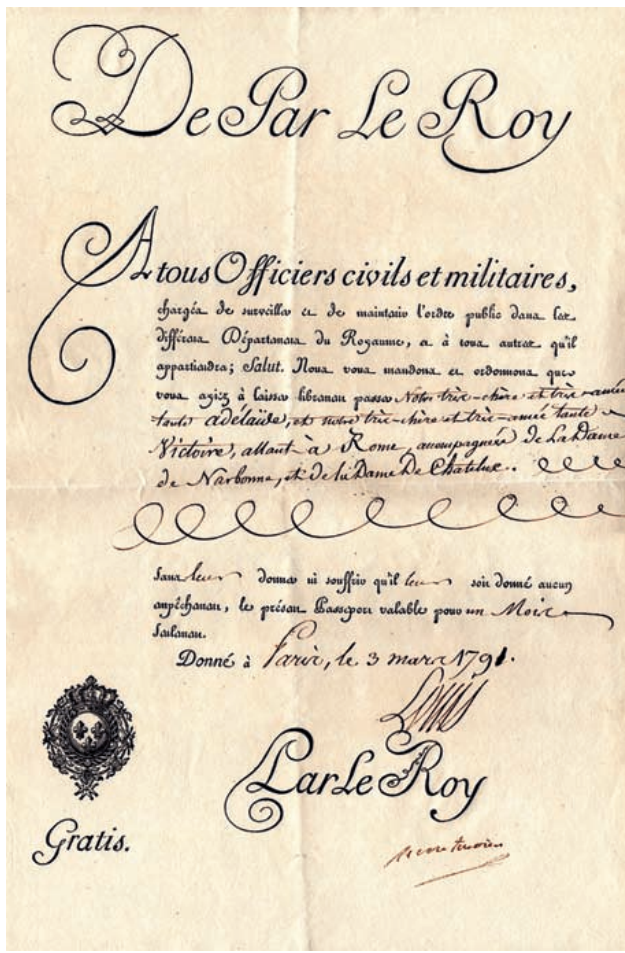 De Par Le Roy
A tous Officiers civils et militaires,
chargés de surveiller et de maintenir l'ordre public dans les
différens Départemens du Royaume, et à tous autres qu'il
appartiendra; Salut. Nous vous mandons et ordonnons que
vous ayiez à laisser librement passer Notre très-chère et très-amée
tante adélaïde, et notre très-chère et très-amée tante
Victoire, allant à Rome, accompagnées de La Dame
de Narbonne, et de la Dame De Chatelux.
sans leur donner ni souffrir qu'il leur soit donné aucun
empêchement, le présent Passeport valable pour un Mois
seulement.
Donné à Paris, le 3 mars 1791.
Louis
Par Le Roy
Gratis.